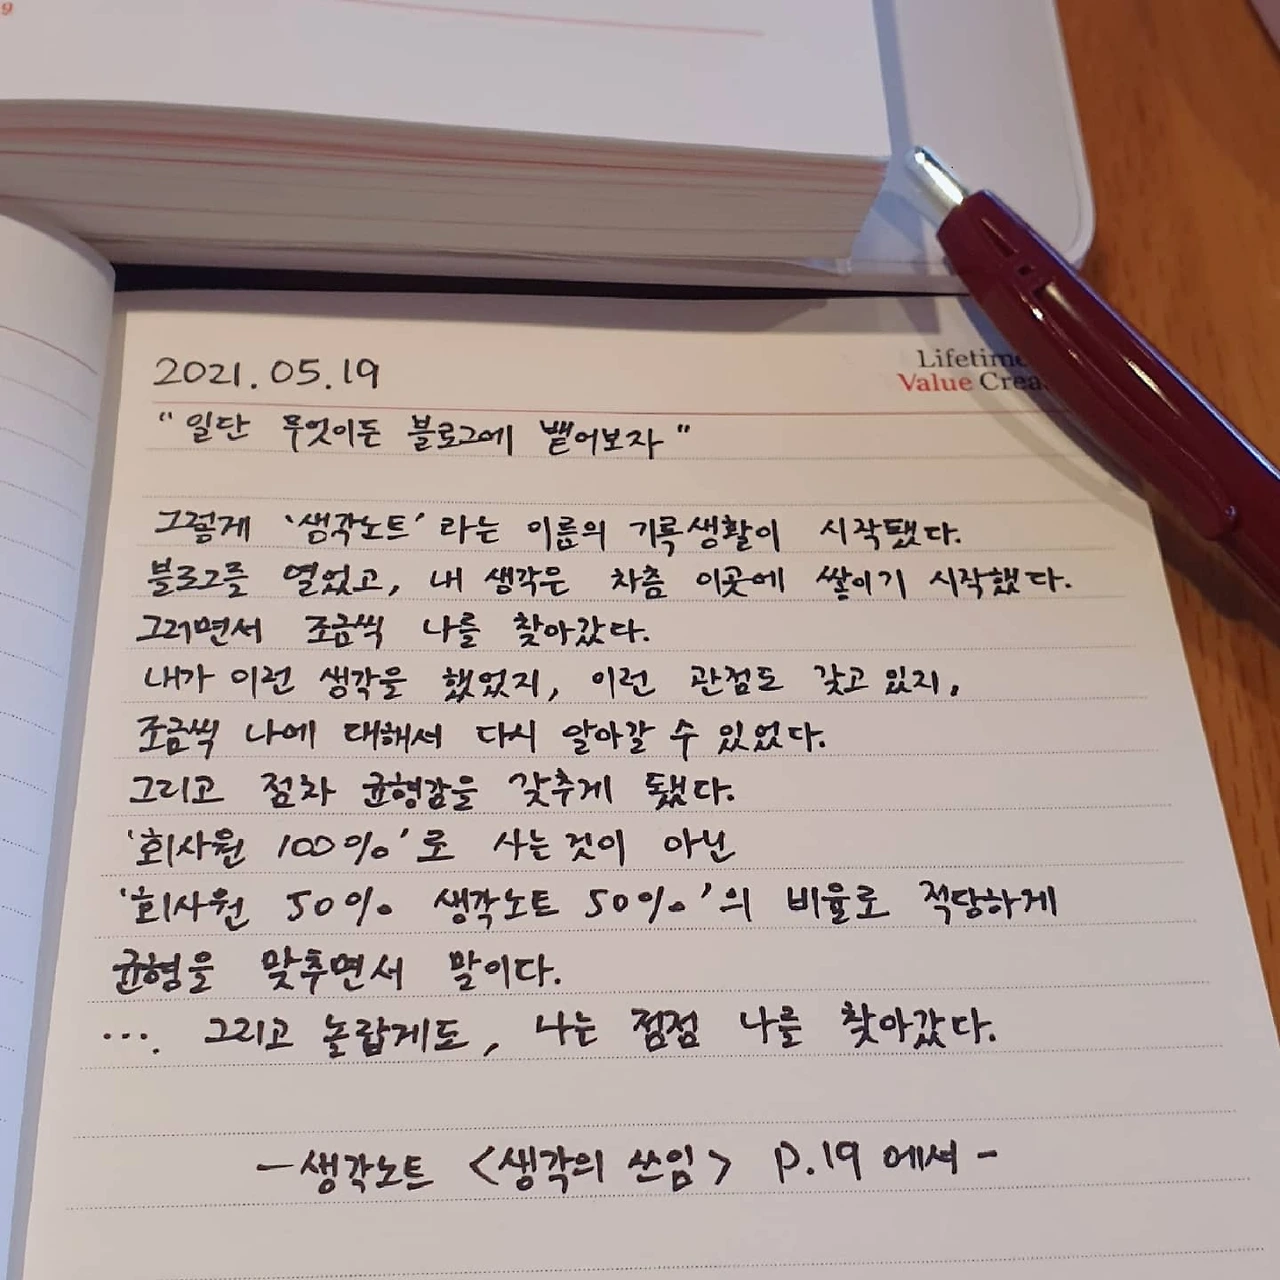 9
Lifetime
Value Crea
2021.05.19
"일단 무엇이든 블로그에 뱉어보자"
그렇게 '생각노트'라는 이름의 기록생활이 시작됐다.
블로그를 열었고, 내 생각은 차츰 이곳에 쌓이기 시작했다.
그러면서 조금씩 나를 찾아갔다.
내가 이런 생각을 했었지, 이런 관점도 갖고 있지,
조금씩 나에 대해서 다시 알아갈 수 있었다.
그리고 점차 균형감을 갖추게 됐다.
'회사원 100%'로 사는 것이 아닌
'회사원 50% 생각노트 50%'의 비율로 적당하게
균형을 맞추면서 말이다.
.... 그리고 놀랍게도, 나는 점점 나를 찾아갔다.
-생각노트 <생각의 쓰임> P.19 에서-